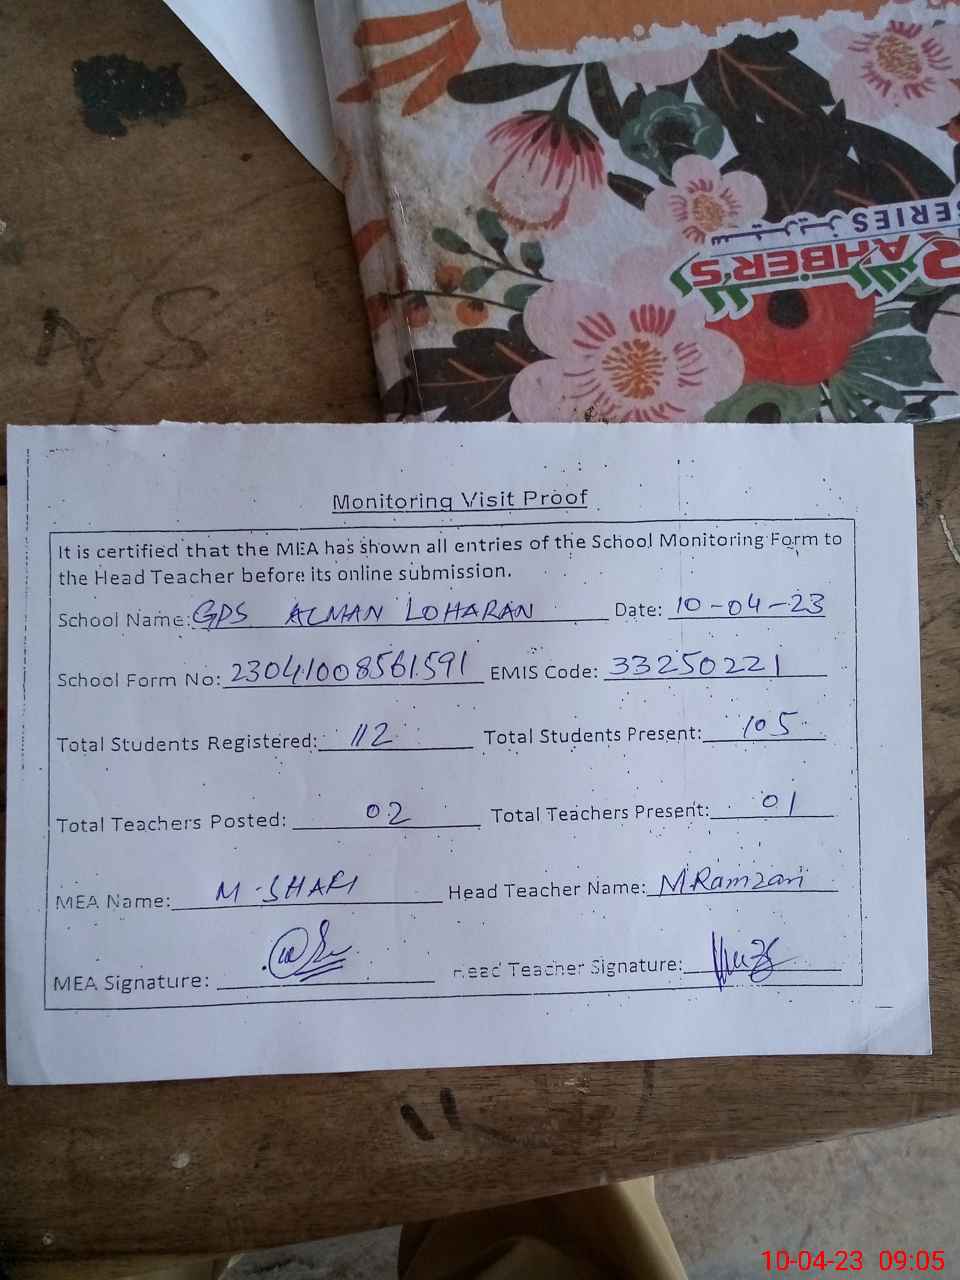 SERIES سیریز
RAHBER'S
A S
Monitoring Visit Proof
It is certified that the MEA has shown all entries of the School Monitoring Form to
the Head Teacher before its online submission.
School Name: GPS ALMAN LOHARAN Date: 10-04-23
School Form No: 23041008561591 EMIS Code: 33250221
Total Students Registered: 112 Total Students Present: 105
Total Teachers Posted: 02 Total Teachers Present: 01
MEA Name: M. SHAFI Head Teacher Name: M Ramzan
MEA Signature: Head Teacher Signature:
10-04-23 09:05